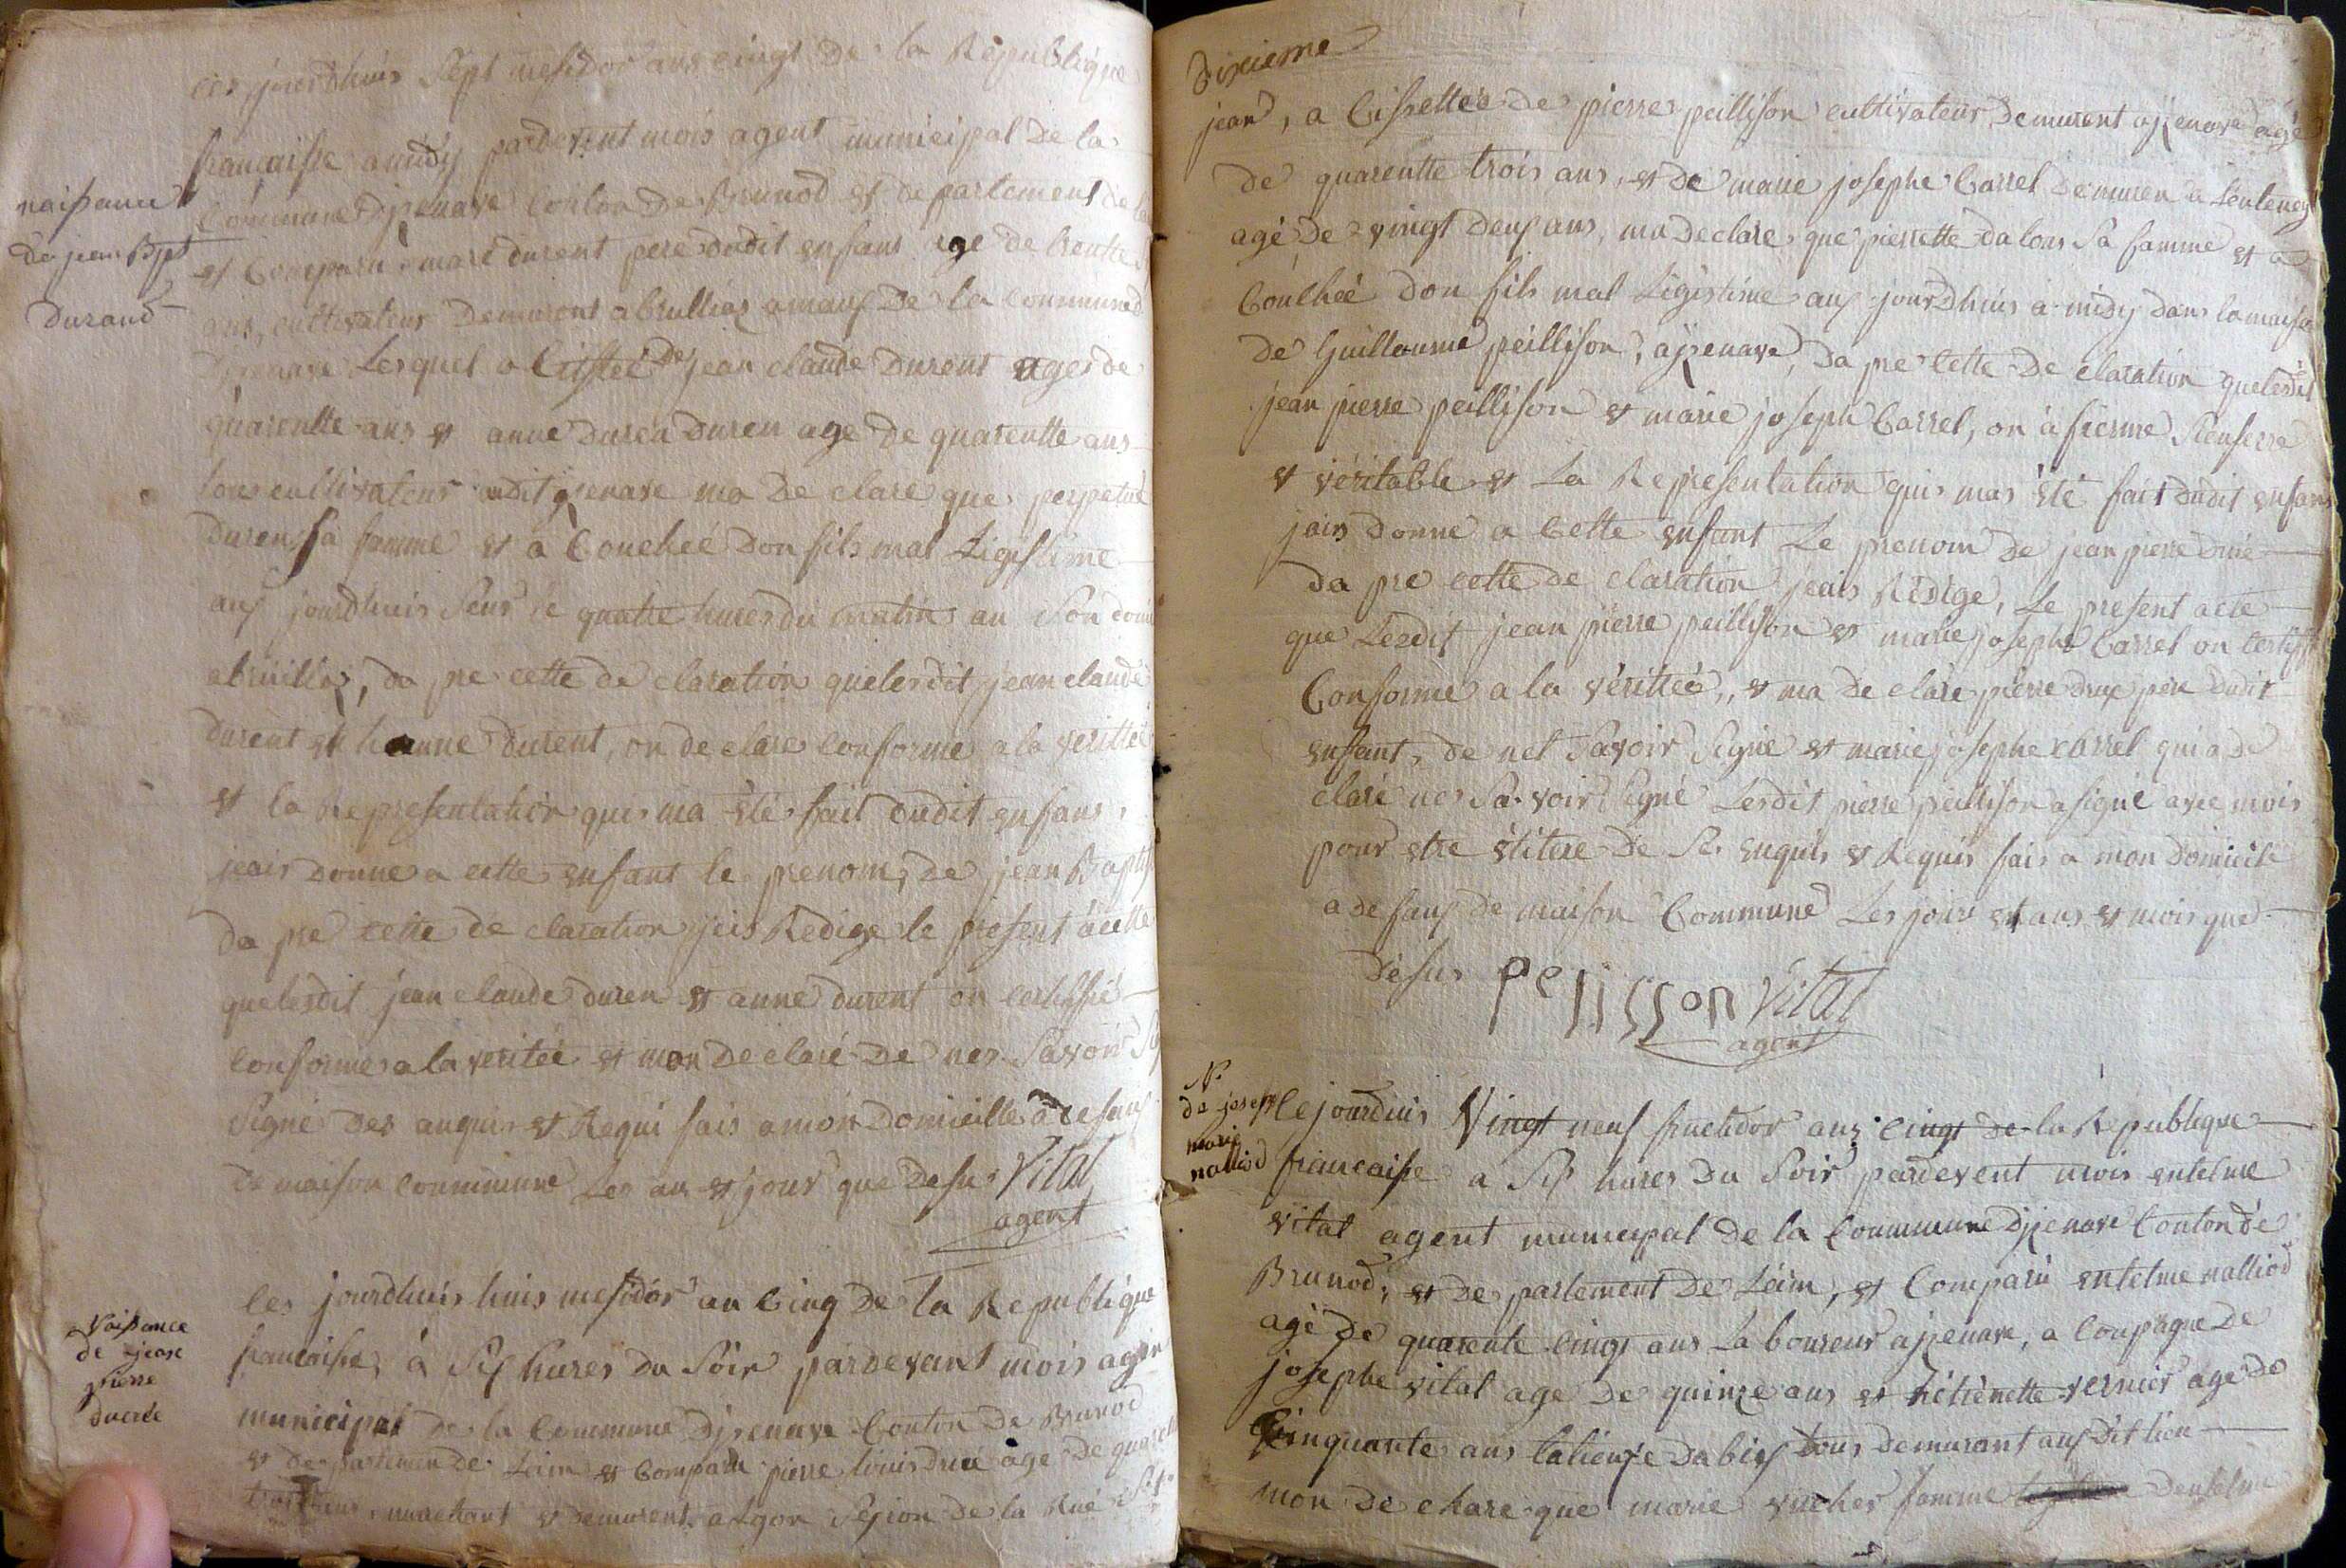 ces jourdhuis Sept mesidor ans cingt de la Republique
françaisse a midy pardevent mois agent municipal de la
naissance
Commune djzenave Conton de Brunod et departement de
de jean Bpt
et Comparu marc durent pere dudit enfans age de trentte
durand
ans, cultivateur demurent a brullias amaux de la communed
djzenave Lesquel a Cistteé de jean claude durent ages de
quarentte ans et anne duren duren age de quarentte ans
tous cultivateur audit jzenave ma de clare que perpetue
duren sa famme et a Couchée don fils mal Ligistime
aux jourdhuis Seur le quatte hures du matin au Son domi
abruillas, da pre cette de claration quelesdit jean claude
durent et hanne durent, on de clare Conforme a la veritteé
et la Representation quis ma été fait dudit enfans
jeais donne a cette enfant le prenom, de jean Baptis
da pre cette de claration jeis Redige le present acette
quelesdit jean claude duren et anne durent on certiffié
Conformes a la veritée et mon de claré de nes Savoir Si
Signé des anquis et Requi fais a mon domicille a defaux
de maison commune Les an et jour que desus Vital
agent
les jourdhuis huis mesidor an Cing de la Republique
Naissance
de jean
pierre
dueree
francaisse, à Six hures du Soir pardevant mois agen
municipal de la Commune djzenave Conton de Brunod
et departemen de Lein et Comparu pierre louis drué age de quarente
trois ans, marchant et demurent a Lyon Sexion de la Rué
dixieme
jean, a Cissettée de pierre peillison cultivateur demurent ajzenave agé
de quarentte trois ans, et de marie josephe Carrel demuren a Lentenay
agé de vingt deux ans, ma declare que pierrette dalons Sa famme et a
Couchéé don fils mal Ligistime aux jourdhuis a midy dans la maison
de Guilloume peillison, ajzenave, da pre Cette de claration quelesdit
jean pierre peillison et marie joseph Carrel, on a fierme Senserre
et veritable et La Representation quis mas été fait dudit enfan
jais donne a Cette enfant Le prenom de jean pierre drué
da pre cette de claration jeais Redige, Le present acte
que Lesdit jean pierre peillison et marie josephe Carrel on certiff
Conforme a la vérittée, et ma de clare pierre drue pere dudit
enfant, de nel Savoir Signe et marie josephe carrel qui a de
claré nes Sa voir Signé Lesdit pierre peillison a signé avec mois
pour etre étitere de Ses enquis et Requis fais a mon domicile
a de faux de maison Commune Les jour et ans et mois que
desus pelisson Vital
agent
N.
de joseph
marie
nalliod
Lejourduis Vingt neuf fructidor ans cingt de la Republique
francaisse a Six hures du Soir pardevent mois entelme
vital agent municipal de la Commune djzenave Conton de
Brunod, et de partement de Léin, et Comparu entelme nalliod
agé de quarente cingt ans La boureur ajzenave, a Coupagne de
josephe vital age de quinze ans et hétiènette vernier age de
Cinquante ans tous demurant aux dit lieu
mon de clare que marie vucher famme dentelme